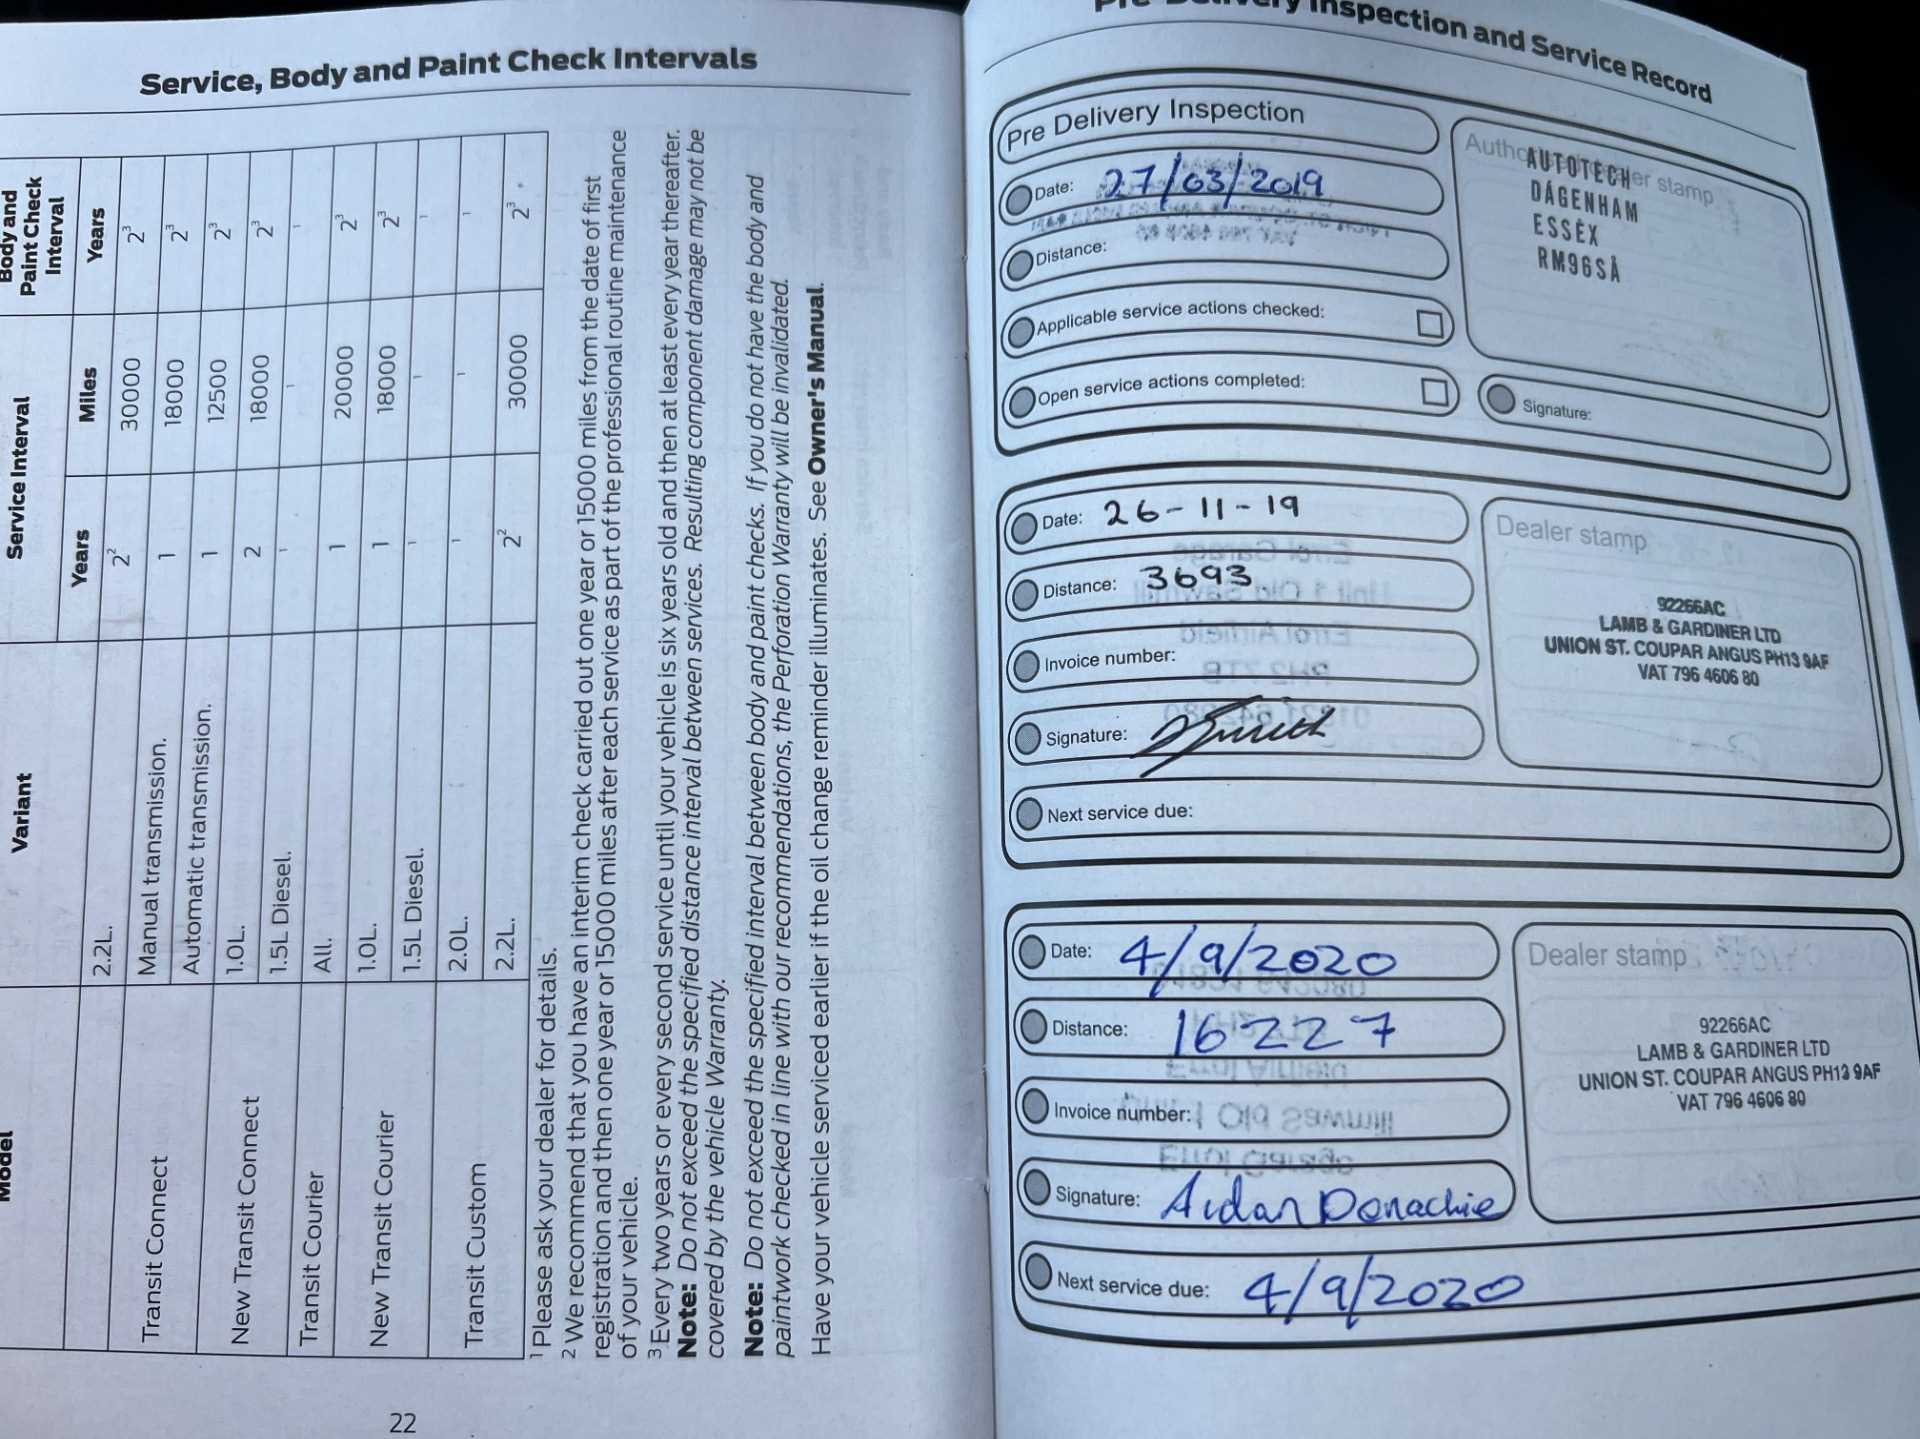 Service, Body and Paint Check Intervals
Model
Variant
Service Interval
Body and Paint Check Interval
Years
Miles
Years
2.2L. 2² 30000 2³
Transit Connect
Manual transmission. 1 18000 2³
Automatic transmission. 1 12500 2³
New Transit Connect
1.0L. 2 18000 2³
1.5L Diesel. - - -
Transit Courier
All. 1 20000 2³
New Transit Courier
1.0L. 1 18000 2³
1.5L Diesel. - - -
Transit Custom
2.0L. - - -
2.2L. 2² 30000 2³
¹ Please ask your dealer for details.
² We recommend that you have an interim check carried out one year or 15000 miles from the date of first
registration and then one year or 15000 miles after each service as part of the professional routine maintenance
of your vehicle.
³ Every two years or every second service until your vehicle is six years old and then at least every year thereafter.
Note: Do not exceed the specified distance interval between services. Resulting component damage may not be
covered by the vehicle Warranty.
Note: Do not exceed the specified interval between body and paint checks. If you do not have the body and
paintwork checked in line with our recommendations, the Perforation Warranty will be invalidated.
Have your vehicle serviced earlier if the oil change reminder illuminates. See Owner's Manual.
22
Pre-Delivery Inspection and Service Record
Pre Delivery Inspection
Date: 27/03/2019
Distance:
Applicable service actions checked:
Open service actions completed:
dealer stamp
AUTOTECH
DAGENHAM
ESSEX
RM96SA
Signature:
Date: 26-11-19
Distance: 3693
Invoice number:
Signature:
Next service due:
Dealer stamp
92266AC
LAMB & GARDINER LTD
UNION ST. COUPAR ANGUS PH13 9AF
VAT 796 4606 80
Date: 4/9/2020
Distance: 16227
Invoice number:
Signature: Aidan Donachie
Next service due: 4/9/2020
Dealer stamp
92266AC
LAMB & GARDINER LTD
UNION ST. COUPAR ANGUS PH13 9AF
VAT 796 4606 80